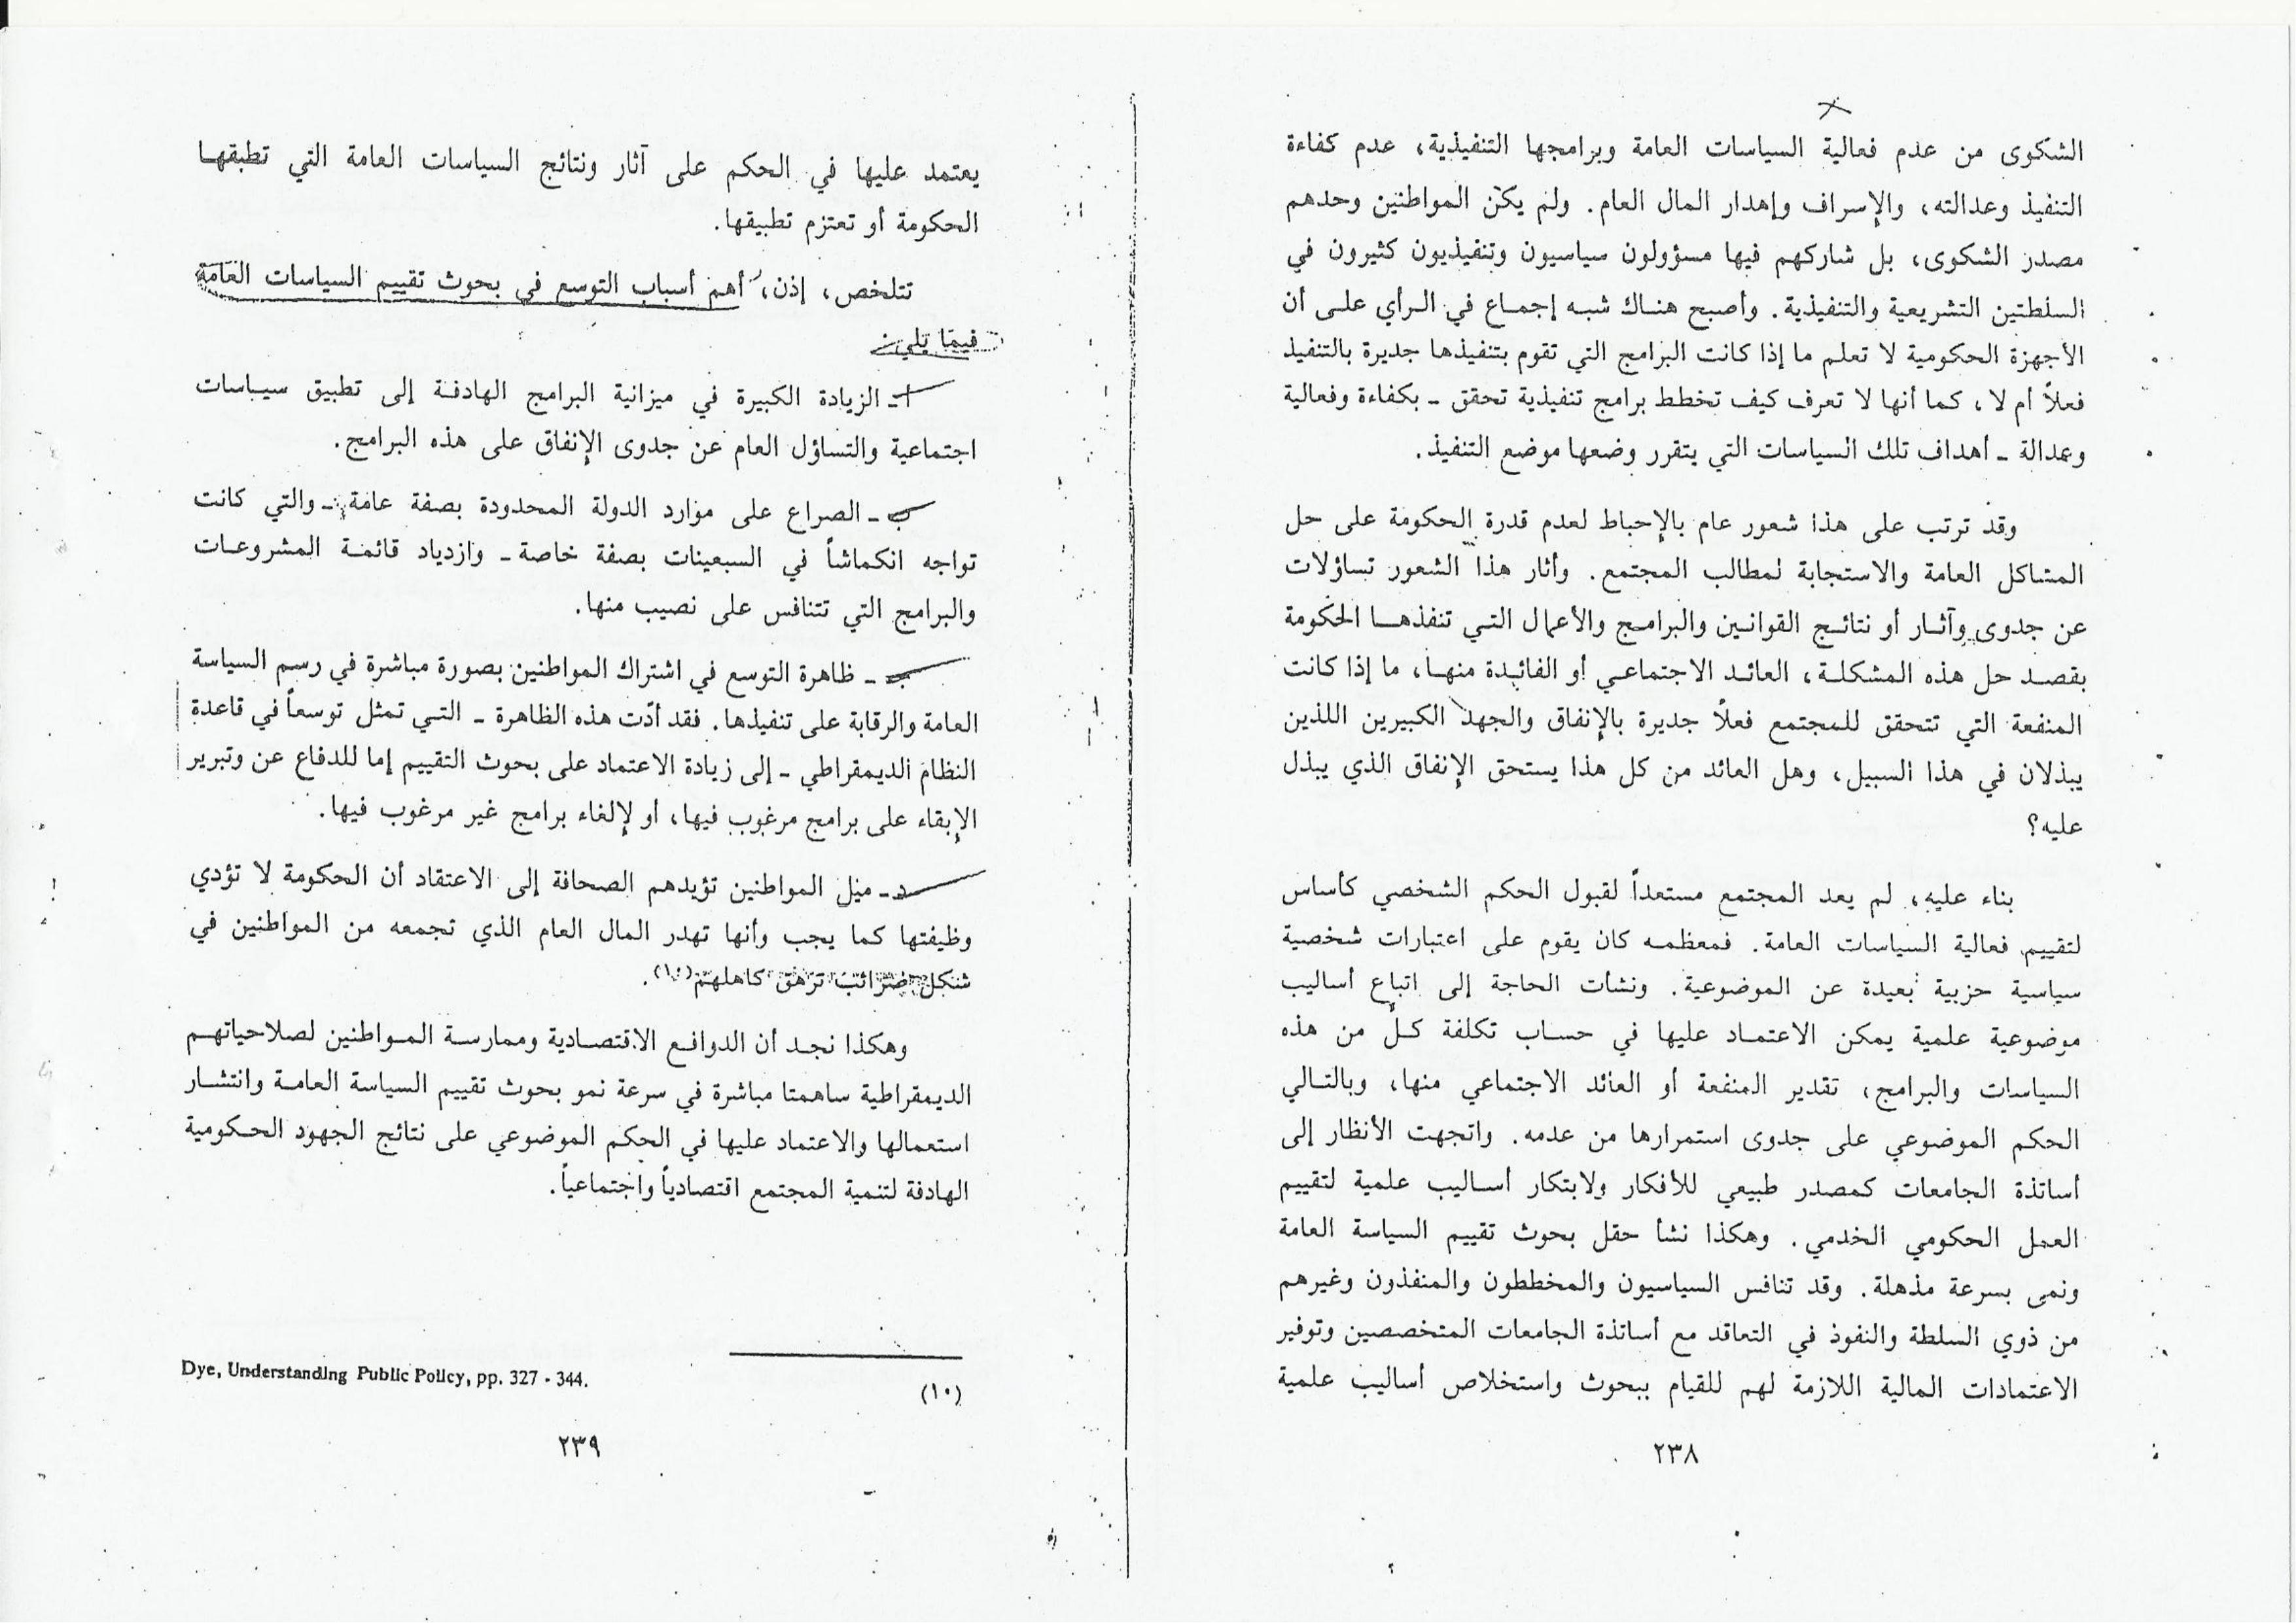 الشكوى من عدم فعالية السياسات العامة وبرامجها التنفيذية، عدم كفاءة
التنفيذ وعدالته، والإسراف وإهدار المال العام. ولم يكن المواطنين وحدهم
مصدر الشكوى، بل شاركهم فيها مسؤولون سياسيون وتنفيذيون كثيرون في
السلطتين التشريعية والتنفيذية. وأصبح هناك شبه إجماع في الرأي على أن
الأجهزة الحكومية لا تعلم ما إذا كانت البرامج التي تقوم بتنفيذها جديرة بالتنفيذ
فعلاً أم لا، كما أنها لا تعرف كيف تخطط برامج تنفيذية تحقق - بكفاءة وفعالية
وعدالة - أهداف تلك السياسات التي يتقرر وضعها موضع التنفيذ.
وقد ترتب على هذا شعور عام بالإحباط لعدم قدرة الحكومة على حل
المشاكل العامة والاستجابة لمطالب المجتمع. وأثار هذا الشعور تساؤلات
عن جدوى وآثار أو نتائج القوانين والبرامج والأعمال التي تنفذها الحكومة
بقصد حل هذه المشكلة، العائد الاجتماعي أو الفائدة منها، ما إذا كانت
المنفعة التي تتحقق للمجتمع فعلاً جديرة بالإنفاق والجهد الكبيرين اللذين
يبذلان في هذا السبيل، وهل العائد من كل هذا يستحق الإنفاق الذي يبذل
عليه؟
بناء عليه، لم يعد المجتمع مستعداً لقبول الحكم الشخصي كأساس
لتقييم فعالية السياسات العامة. فمعظمه كان يقوم على اعتبارات شخصية
سياسية حزبية بعيدة عن الموضوعية. ونشأت الحاجة إلى اتباع أساليب
موضوعية علمية يمكن الاعتماد عليها في حساب تكلفة كلّ من هذه
السياسات والبرامج، تقدير المنفعة أو العائد الاجتماعي منها، وبالتالي
الحكم الموضوعي على جدوى استمرارها من عدمه. واتجهت الأنظار إلى
أساتذة الجامعات كمصدر طبيعي للأفكار ولابتكار أساليب علمية لتقييم
العمل الحكومي الخدمي. وهكذا نشأ حقل بحوث تقييم السياسة العامة
ونمى بسرعة مذهلة. وقد تنافس السياسيون والمخططون والمنفذون وغيرهم
من ذوي السلطة والنفوذ في التعاقد مع أساتذة الجامعات المتخصصين وتوفير
الاعتمادات المالية اللازمة لهم للقيام ببحوث واستخلاص أساليب علمية
٢٣٨
يعتمد عليها في الحكم على آثار ونتائج السياسات العامة التي تطبقها
الحكومة أو تعتزم تطبيقها.
تتلخص، إذن، أهم أسباب التوسع في بحوث تقييم السياسات العامة
فيما يلي:
أ - الزيادة الكبيرة في ميزانية البرامج الهادفة إلى تطبيق سياسات
اجتماعية والتساؤل العام عن جدوى الإنفاق على هذه البرامج.
ب - الصراع على موارد الدولة المحدودة بصفة عامة - والتي كانت
تواجه انكماشاً في السبعينات بصفة خاصة - وازدياد قائمة المشروعات
والبرامج التي تتنافس على نصيب منها.
جـ - ظاهرة التوسع في اشتراك المواطنين بصورة مباشرة في رسم السياسة
العامة والرقابة على تنفيذها. فقد أدّت هذه الظاهرة - التي تمثل توسعاً في قاعدة
النظام الديمقراطي - إلى زيادة الاعتماد على بحوث التقييم إما للدفاع عن وتبرير
الإبقاء على برامج مرغوب فيها، أو لإلغاء برامج غير مرغوب فيها.
د - ميل المواطنين تؤيدهم الصحافة إلى الاعتقاد أن الحكومة لا تؤدي
وظيفتها كما يجب وأنها تهدر المال العام الذي تجمعه من المواطنين في
شكل ضرائب ترهق كاهلهم(١٠).
وهكذا نجد أن الدوافع الاقتصادية وممارسة المواطنين لصلاحياتهم
الديمقراطية ساهمتا مباشرة في سرعة نمو بحوث تقييم السياسة العامة وانتشار
استعمالها والاعتماد عليها في الحكم الموضوعي على نتائج الجهود الحكومية
الهادفة لتنمية المجتمع اقتصادياً واجتماعياً.
(١٠) Dye, Understanding Public Policy, pp. 327 - 344.
٢٣٩